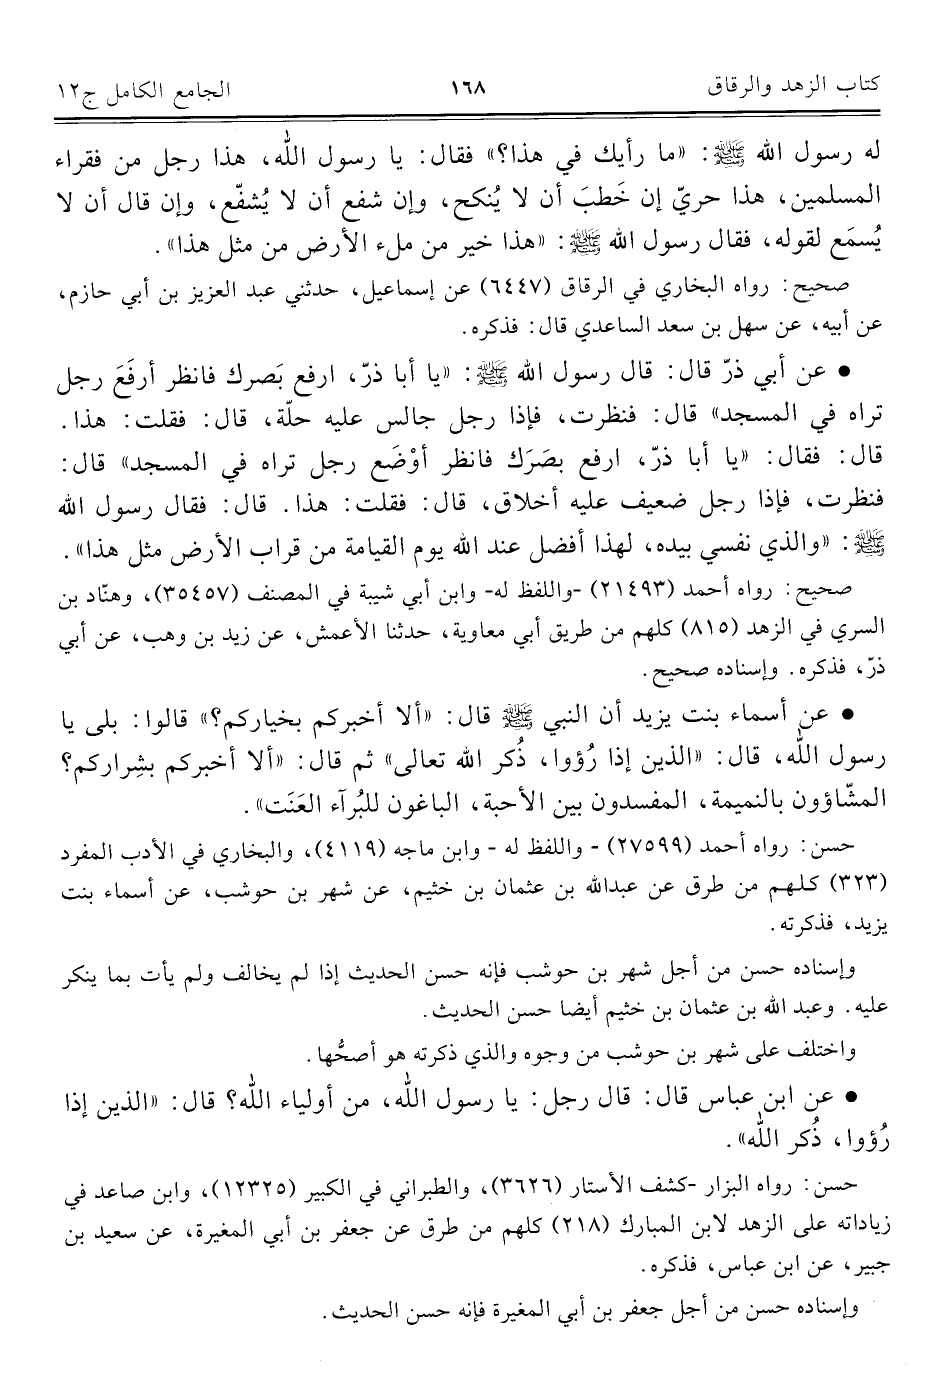 كتاب الزهد والرقاق ١٦٨ الجامع الكامل ج١٢
له رسول الله ﷺ: «ما رأيك في هذا؟» فقال: يا رسول الله، هذا رجل من فقراء
المسلمين، هذا حريّ إن خَطبَ أن لا يُنكح، وإن شفع أن لا يُشفّع، وإن قال أن لا
يُسمَع لقوله، فقال رسول الله ﷺ: «هذا خير من ملء الأرض من مثل هذا».
صحيح: رواه البخاري في الرقاق (٦٤٤٧) عن إسماعيل، حدثني عبد العزيز بن أبي حازم،
عن أبيه، عن سهل بن سعد الساعدي قال: فذكره.
• عن أبي ذرّ قال: قال رسول الله ﷺ: «يا أبا ذرّ، ارفع بَصرك فانظر أرفَعَ رجل
تراه في المسجد» قال: فنظرت، فإذا رجل جالس عليه حلّة، قال: فقلت: هذا.
قال: فقال: «يا أبا ذرّ، ارفع بصَرَك فانظر أوْضَع رجل تراه في المسجد» قال:
فنظرت، فإذا رجل ضعيف عليه أخلاق، قال: فقلت: هذا. قال: فقال رسول الله
ﷺ: «والذي نفسي بيده، لهذا أفضل عند الله يوم القيامة من قراب الأرض مثل هذا».
صحيح: رواه أحمد (٢١٤٩٣) -واللفظ له- وابن أبي شيبة في المصنف (٣٥٤٥٧)، وهنّاد بن
السري في الزهد (٨١٥) كلهم من طريق أبي معاوية، حدثنا الأعمش، عن زيد بن وهب، عن أبي
ذرّ، فذكره. وإسناده صحيح.
• عن أسماء بنت يزيد أن النبي ﷺ قال: «ألا أخبركم بخياركم؟» قالوا: بلى يا
رسول الله، قال: «الذين إذا رُؤوا، ذُكر الله تعالى» ثم قال: «ألا أخبركم بشِراركم؟
المشّاؤون بالنميمة، المفسدون بين الأحبة، الباغون للبُرآء العَنَت».
حسن: رواه أحمد (٢٧٥٩٩) - واللفظ له - وابن ماجه (٤١١٩)، والبخاري في الأدب المفرد
(٣٢٣) كلهم من طرق عن عبدالله بن عثمان بن خثيم، عن شهر بن حوشب، عن أسماء بنت
يزيد، فذكرته.
وإسناده حسن من أجل شهر بن حوشب فإنه حسن الحديث إذا لم يخالف ولم يأت بما ينكر
عليه. وعبد الله بن عثمان بن خثيم أيضا حسن الحديث.
واختلف على شهر بن حوشب من وجوه والذي ذكرته هو أصحُّها.
• عن ابن عباس قال: قال رجل: يا رسول الله، من أولياء الله؟ قال: «الذين إذا
رُؤوا، ذُكر الله».
حسن: رواه البزار -كشف الأستار (٣٦٢٦)، والطبراني في الكبير (١٢٣٢٥)، وابن صاعد في
زياداته على الزهد لابن المبارك (٢١٨) كلهم من طرق عن جعفر بن أبي المغيرة، عن سعيد بن
جبير، عن ابن عباس، فذكره.
وإسناده حسن من أجل جعفر بن أبي المغيرة فإنه حسن الحديث.